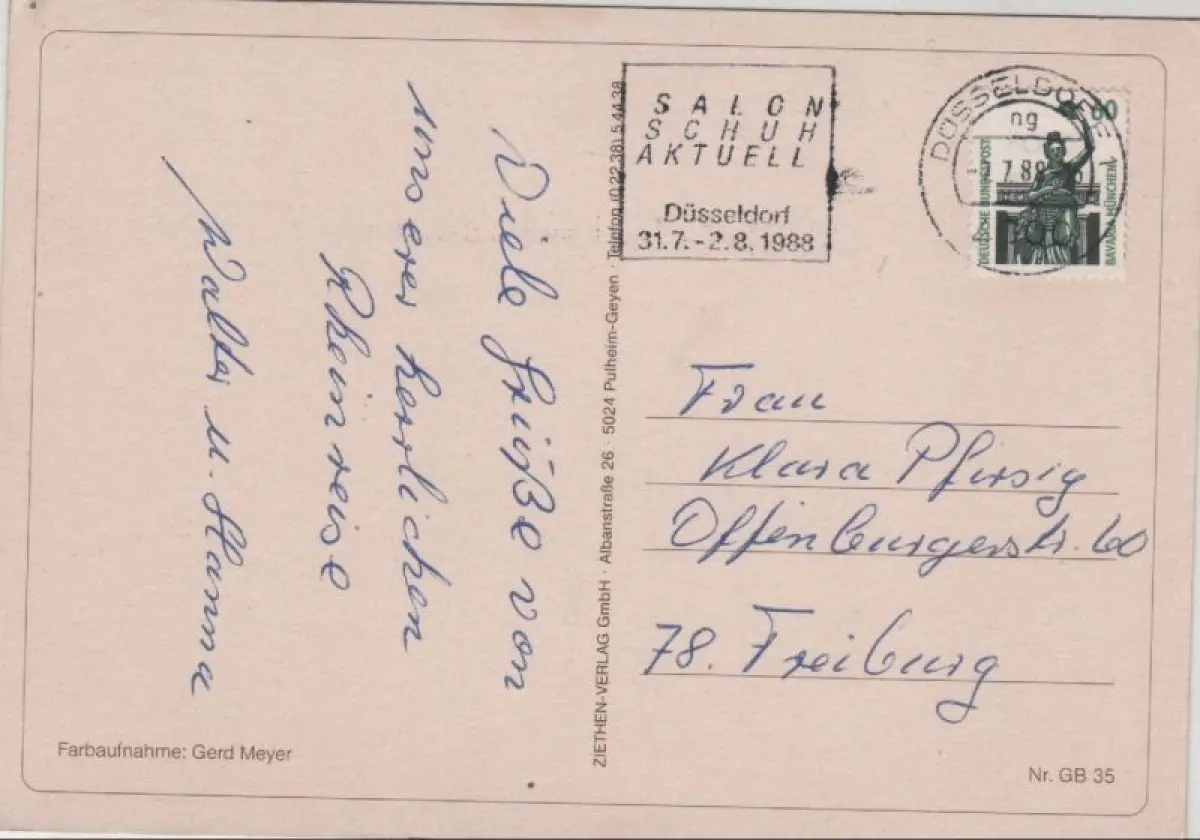 Viele Grüße von
unserer herrlichen
Rheinreise
Walter u. Hanna
Farbaufnahme: Gerd Meyer
ZIETHEN-VERLAG GmbH · Albanstraße 26 · 5024 Pulheim-Geyen · Telefon (0 22 38) 5 44 38
SALON
SCHUH
AKTUELL
Düsseldorf
31.7.-2.8.1988
DÜSSELDORF
ng
7.88
60
DEUTSCHE BUNDESPOST
BAVARIA MÜNCHEN
Frau
Klara Pfirsig
Offenburgerstr. 60
78. Freiburg
Nr. GB 35